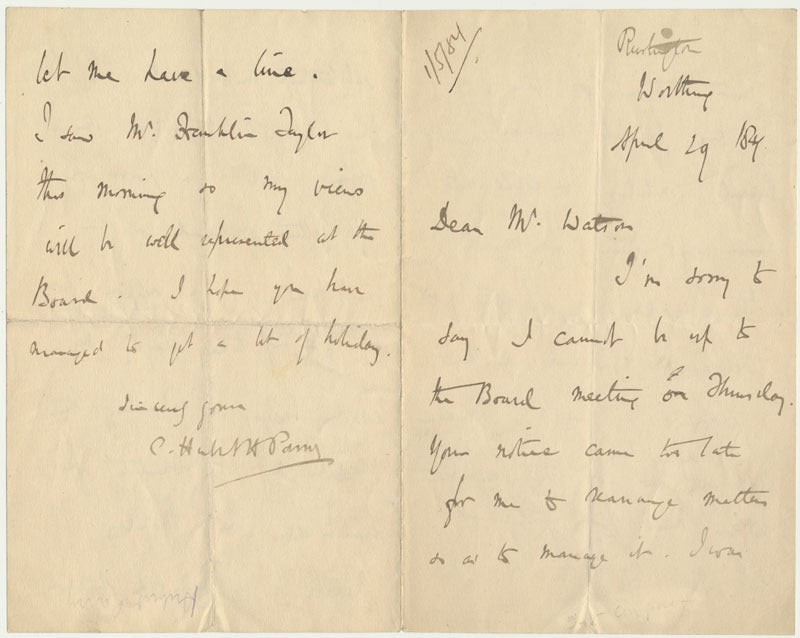 1/5/84
Rustington
Worthing
April 29 1884
Dear Mr. Watson
I'm sorry to
say I cannot be up to
the Board meeting on Thursday.
Your notice came too late
for me to rearrange matters
so as to manage it. I was
let me have a line.
I saw Mr. Franklin Taylor
this morning so my views
will be well represented at the
Board. I hope you have
managed to get a bit of holiday.
Sincerely yours
C. Hubert H Parry